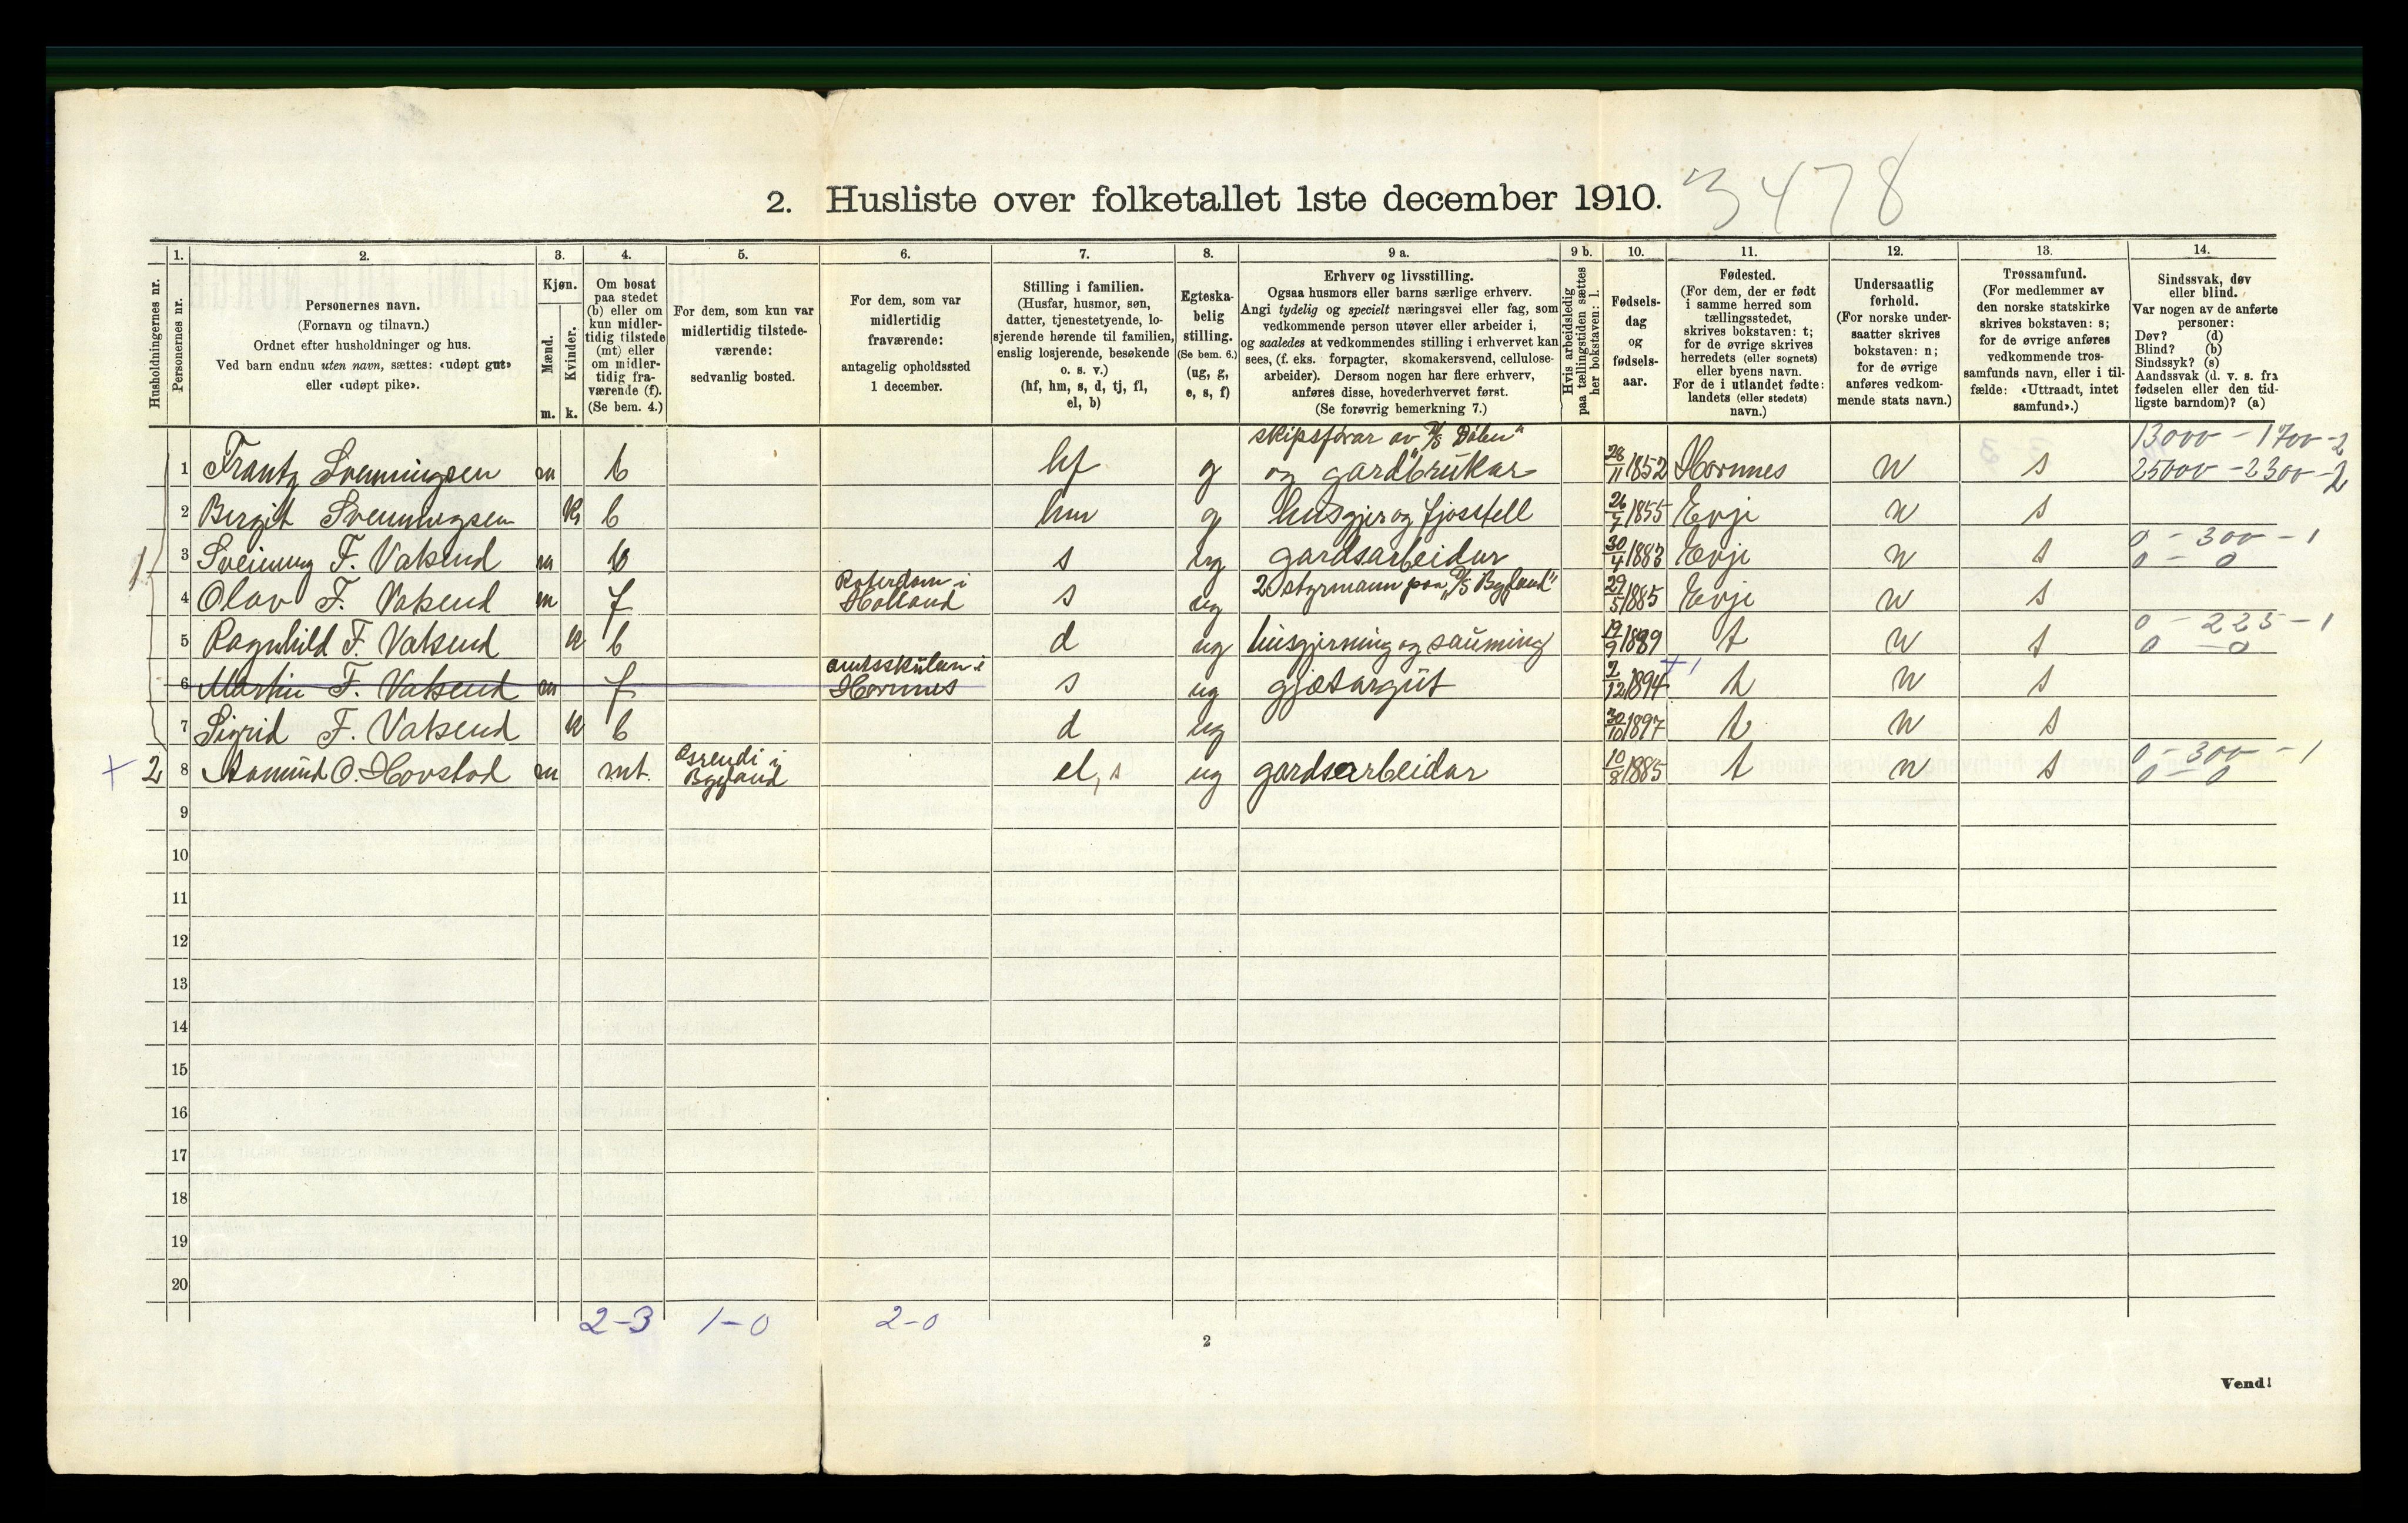 2. Husliste over folketallet 1ste december 1910. 3478
1. 2. 3. 4. 5. 6. 7. 8. 9 a. 9 b. 10. 11. 12. 13. 14.
Husholdningernes nr.
Personernes nr.
Personernes navn.
(Fornavn og tilnavn.)
Ordnet efter husholdninger og hus.
Ved barn endnu uten navn, sættes: «udøpt gut»
eller «udøpt pike».
Kjøn.
Mænd.
Kvinder.
m. k.
Om bosat
paa stedet
(b) eller om
kun midler-
tidig tilstede
(mt) eller
om midler-
tidig fra-
værende (f).
(Se bem. 4.)
For dem, som kun var
midlertidig tilstede-
værende:
sedvanlig bosted.
For dem, som var
midlertidig
fraværende:
antagelig opholdssted
1 december.
Stilling i familien.
(Husfar, husmor, søn,
datter, tjenestetyende, lo-
sjerende hørende til familien,
enslig losjerende, besøkende
o. s. v.)
(hf, hm, s, d, tj, fl,
el, b)
Egteska-
belig
stilling.
(Se bem. 6.)
(ug, g,
e, s, f)
Erhverv og livsstilling.
Ogsaa husmors eller barns særlige erhverv.
Angi tydelig og specielt næringsvei eller fag, som
vedkommende person utøver eller arbeider i,
og saaledes at vedkommendes stilling i erhvervet kan
sees, (f. eks. forpagter, skomakersvend, cellulose-
arbeider). Dersom nogen har flere erhverv,
anføres disse, hovederhvervet først.
(Se forøvrig bemerkning 7.)
Hvis arbeidsledig
paa tællingstiden sættes
her bokstaven: l.
Fødsels-
dag
og
fødsels-
aar.
Fødested.
(For dem, der er født
i samme herred som
tællingsstedet,
skrives bokstaven: t;
for de øvrige skrives
herredets (eller sognets)
eller byens navn.
For de i utlandet fødte:
landets (eller stedets)
navn.)
Undersaatlig
forhold.
(For norske under-
saatter skrives
bokstaven: n;
for de øvrige
anføres vedkom-
mende stats navn.)
Trossamfund.
(For medlemmer av
den norske statskirke
skrives bokstaven: s;
for de øvrige anføres
vedkommende tros-
samfunds navn, eller i til-
fælde: «Uttraadt, intet
samfund».)
Sindssvak, døv
eller blind.
Var nogen av de anførte
personer:
Døv? (d)
Blind? (b)
Sindssyk? (s)
Aandssvak (d. v. s. fra
fødselen eller den tid-
ligste barndom)? (a)
skipsförar av D/S "Dölen" 13000 - 1700 - 2
1 Frantz Svenningsen m b hf g og gardbrukar 28/11 1852 Hornnes n s 25000 - 2300 - 2
2 Bergit Svenningsen k b hm g husgjer og fjosstell 26/7 1855 Evje n s
0 - 300 - 1
1 3 Sveinung F. Vatsend m b s ug gardsarbeidar 30/4 1883 Evje n s 0 - 0
Roterdam i
4 Olav F. Vatsend m f Holland s ug 2 styrmann paa D/S "Bygland" 29/5 1885 Evje n s
0 - 225 - 1
5 Ragnhild F. Vatsend k b d ug husgjerning og sauming 19/9 1889 t n s 0 - 0
amtsskulen i + 1
6 Martin F. Vatsend m f Hornnes s ug gjætargut 2/12 1894 t n s
7 Sigrid F. Vatsend k b d ug 30/10 1897 t n s
i 0 - 300 - 1
+ 2 8 Aamund O. Hovstad m mt. Bygland el, s ug gardsarbeidar 10/8 1885 t n s 0 - 0
9
10
11
12
13
14
15
16
17
18
19
20
2-3 1-0 2-0
2
Vend!